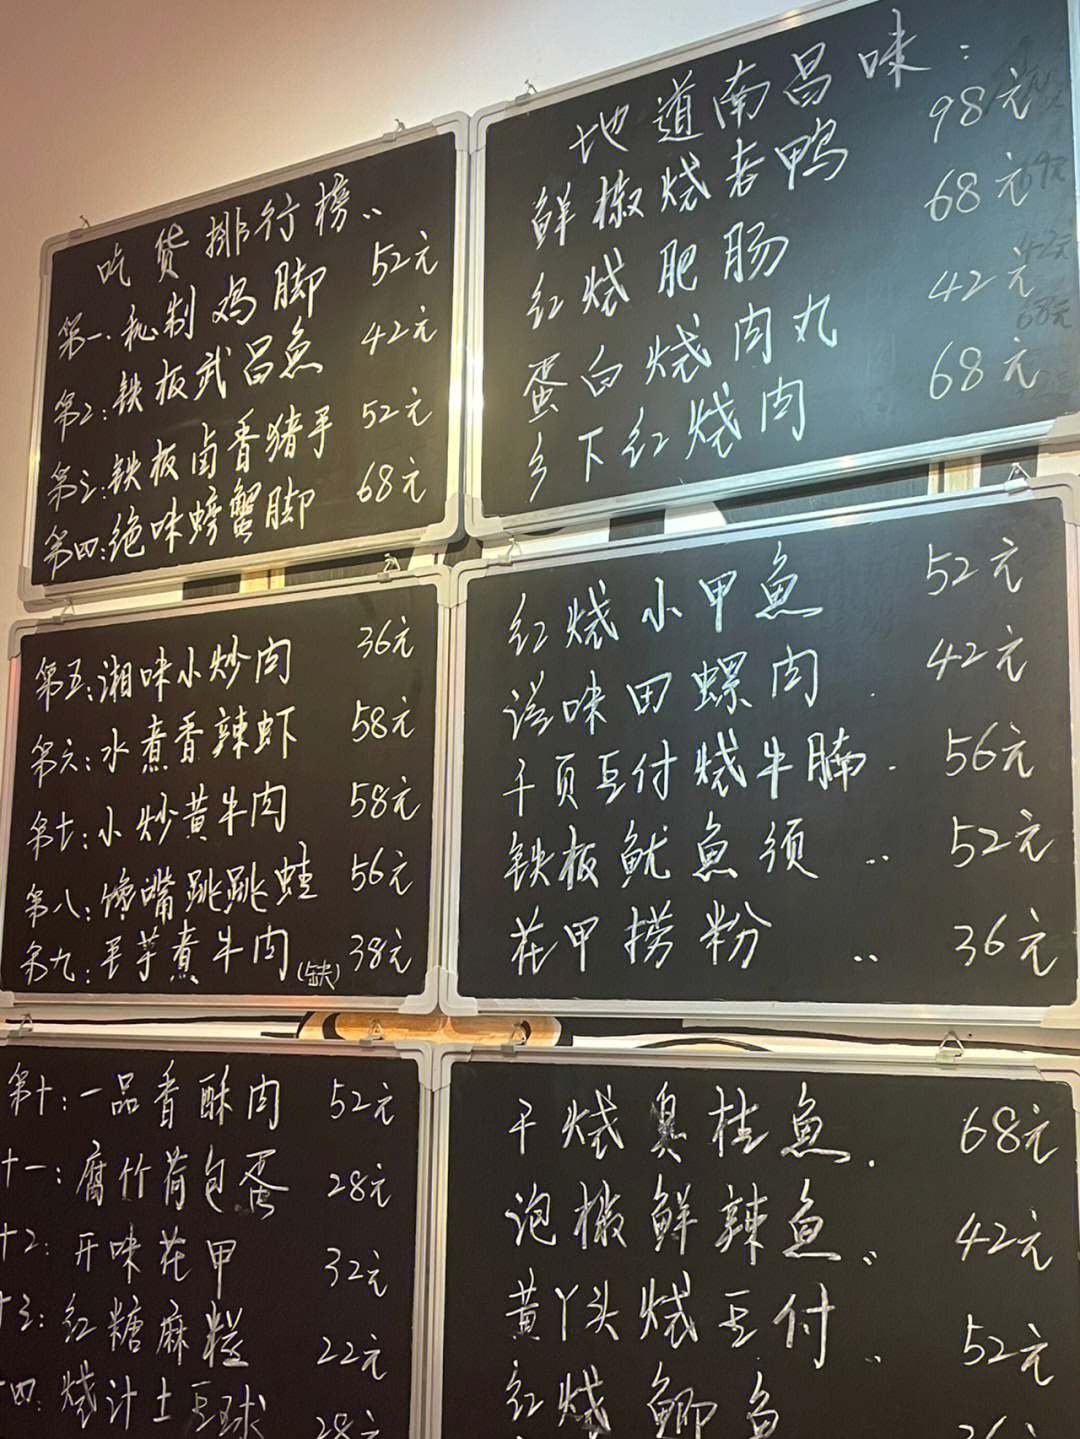 吃货排行榜..
第一.秘制鸡脚 52元
第2:铁板武昌魚 42元
第三:铁板卤香猪手 52元
第四:绝味螃蟹脚 68元
地道南昌味:
鲜椒烧老鸭 98元
红烧肥肠 68元
蛋白烧肉丸 42元
乡下红烧肉 68元
第五:湘味小炒肉 36元
第六:水煮香辣虾 58元
第七:小炒黄牛肉 58元
第八:馋嘴跳跳蛙 56元
第九:芋煮牛肉(缺) 38元
红烧小甲魚 52元
滋味田螺肉. 42元
千页豆付烧牛腩. 56元
铁板鱿魚须.. 52元
花甲捞粉.. 36元
第十:一品香酥肉 52元
十一:腐竹荷包蛋 28元
十2:开味花甲 32元
十三:红糖麻糍 22元
四:烧汁土豆球 28元
干烧臭桂魚. 68元
泡椒鲜辣魚.. 42元
黄丫头烧豆付.. 52元
红烧鲫鱼